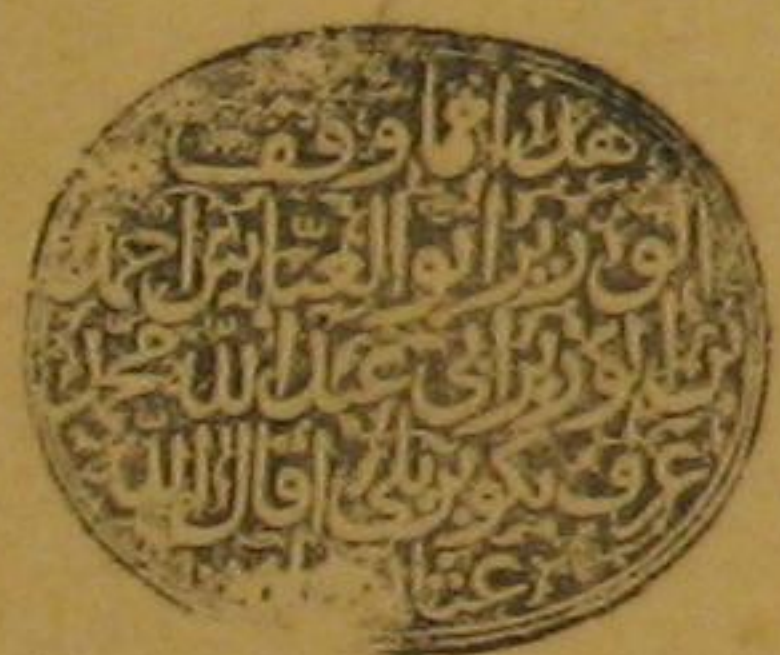 هذا مما وقف
الوزير ابو العباس احمد
بن الوزير ابي عبد الله محمد
عرف بكوبريلي اقال الله
عثا